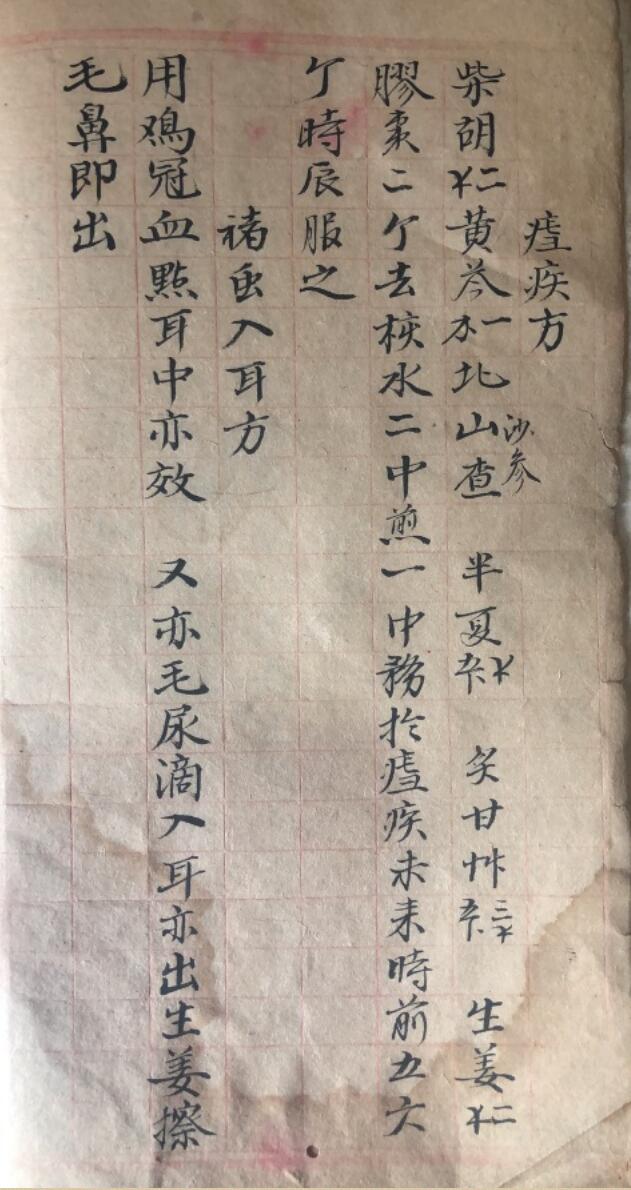 瘧疾方
柴胡二才黃芩一才北山查沙参 半夏 炙甘艸 生姜二才
膠棗二个去核水二中煎一中務於瘧疾未来時前五六
个時辰服之
禇虫入耳方
用鳮冠血㸃耳中亦效 又亦毛尿滴入耳亦出生姜擦
毛鼻即出